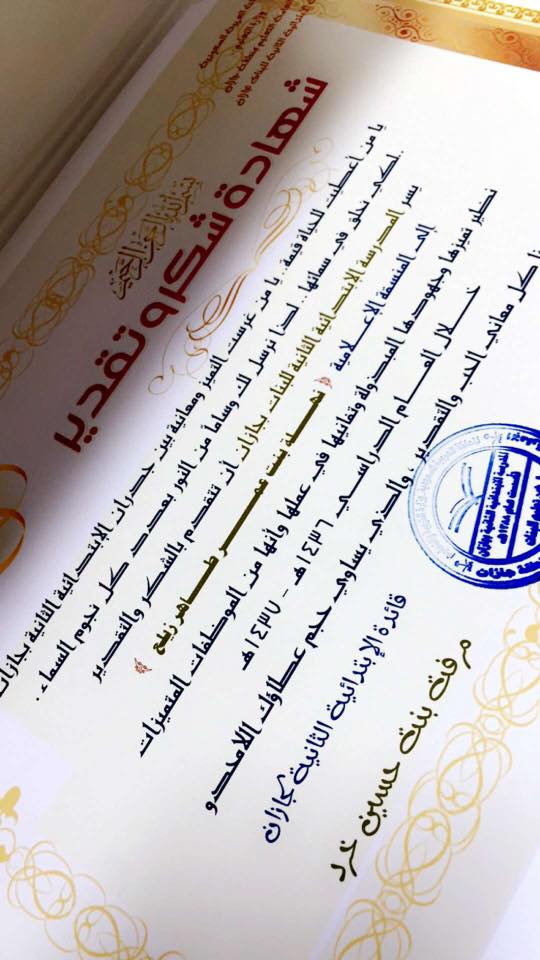 المدرسة الابتدائية الثانية للبنات بجازان
بسم الله الرحمن الرحيم
شهادة شكر وتقدير
يا من أعطيت للحياة قيمة.. يا من غرست التميز ومعانيه بين جدران الابتدائية الثانية بجازان
لكي نحلق في سمائها.. لذا نرسل لك وساماً من النور بعدد كل نجوم السماء.
يسر المدرسة الإبتدائية الثانية للبنات بجازان أن تتقدم بالشكر والتقدير
إلى المنسقة الإعلامية
بنت طاهر زيلع
نظير تميزها وجهودها المبذولة وتفانيها في عملها وأنها من الموظفات المتميزات
خلال العام الدراسي ١٤٣٦هـ - ١٤٣٧هـ
كل معاني الحب والتقدير والذي يساوي حجم عطاؤك اللامحدو
قائدة الإبتدائية الثانية بجازان
مرفت بنت حسين خرد